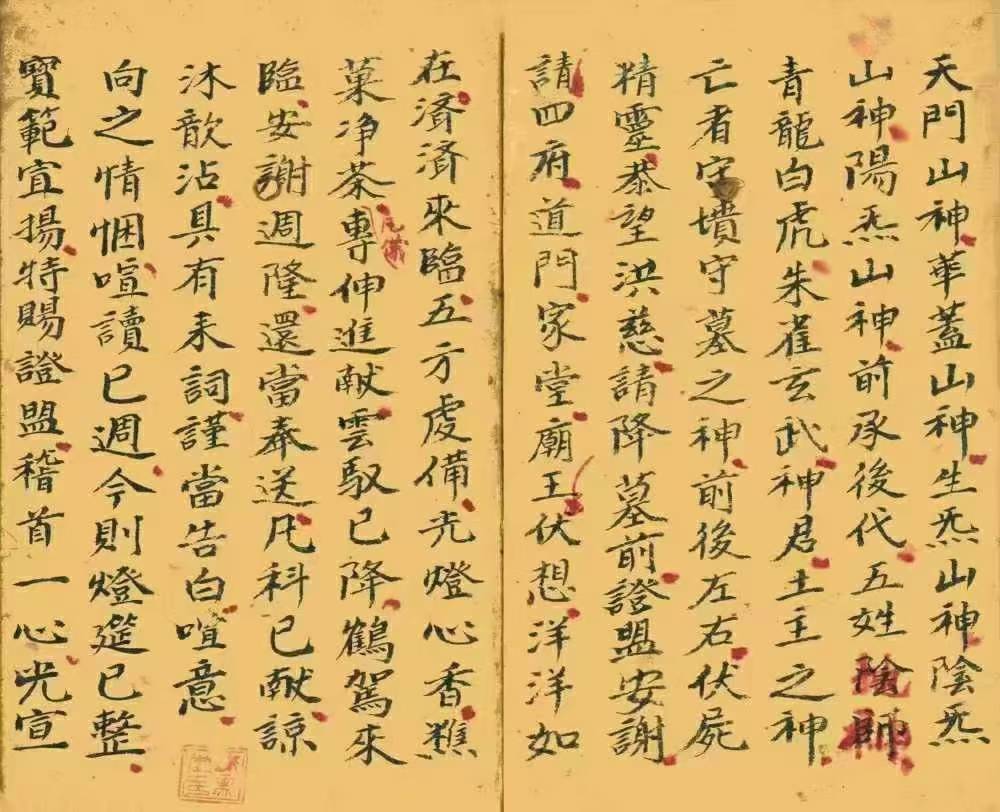 天門山神華蓋山神生炁山神陰炁
山神陽炁山神前承後代五姓陰師
青龍白虎朱雀玄武神君土主之神
亡者守墳守墓之神前後左右伏屍
精靈恭望洪慈請降墓前證盟安謝
請四府道門家堂廟王伏想洋洋如
在濟濟來臨五方虔備光燈心香燋
菓净茶專伸進献雲馭已降鶴駕來
凡儀
臨安謝週隆還當奉送凡科已献諒
沐歆沾具有來詞謹當告白喧意
向之情悃喧讀已週今則燈筵已整
寶範宜揚特賜證盟稽首一心光宣